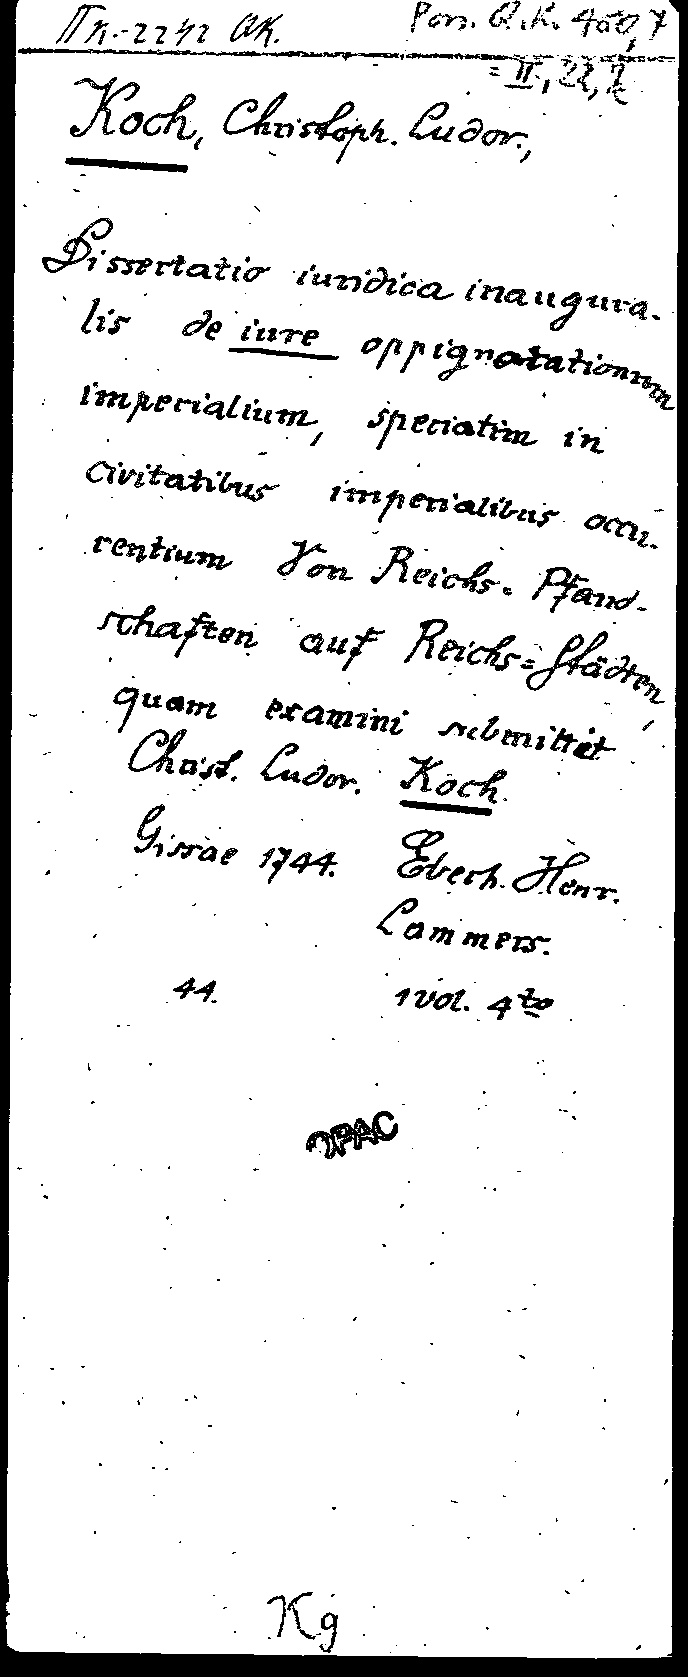 Pon. Q.K. 450,7
= II, 22,
Koch, Christoph. Ludov.,
Dissertatio iuridica inaugura-
lis de iure oppignoratationum
imperialium, speciatim in
civitatibus imperialibus occu-
rentium Von Reichs-Pfand-
schaften auf Reichs=Städten,
quam examini submittit
Christ. Ludov. Koch.
Gissae 1744. Eberh. Henr.
Lammers.
44. 1 vol. 4to
OPAC
Kg